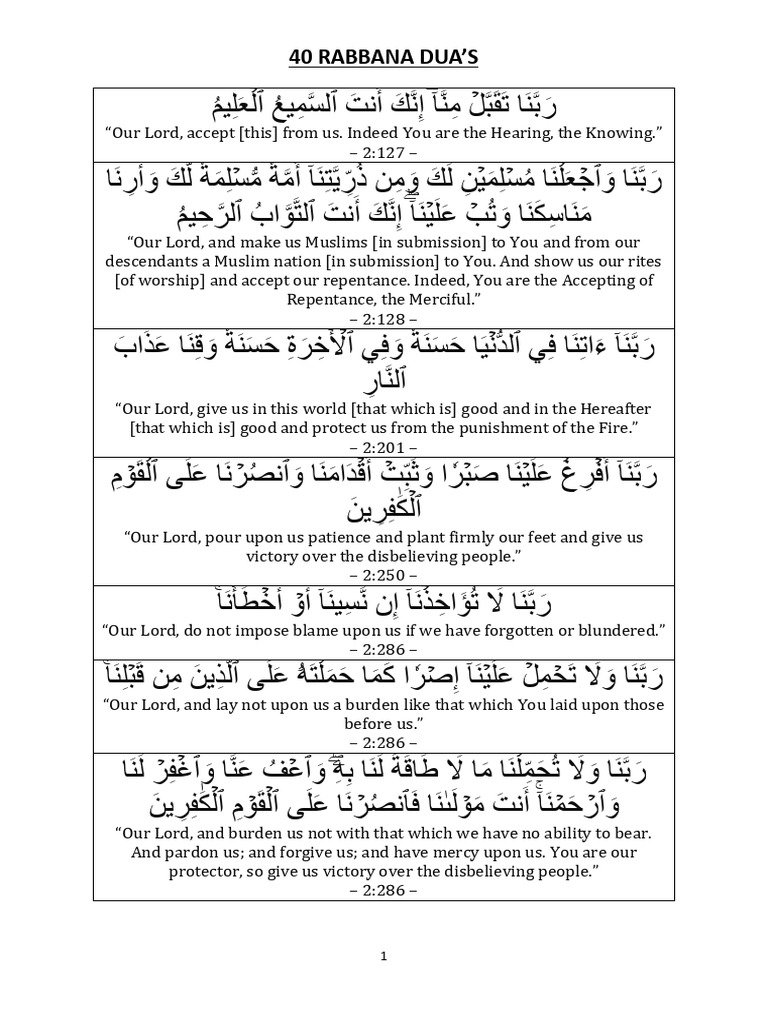 40 RABBANA DUA’S
رَبَّنَا تَقَبَّلۡ مِنَّآۖ إِنَّكَ أَنتَ ٱلسَّمِيعُ ٱلۡعَلِيمُ
“Our Lord, accept [this] from us. Indeed You are the Hearing, the Knowing.”
– 2:127 –
رَبَّنَا وَٱجۡعَلۡنَا مُسۡلِمَيۡنِ لَكَ وَمِن ذُرِّيَّتِنَآ أُمَّةٗ مُّسۡلِمَةٗ لَّكَ وَأَرِنَا
مَنَاسِكَنَا وَتُبۡ عَلَيۡنَآۖ إِنَّكَ أَنتَ ٱلتَّوَّابُ ٱلرَّحِيمُ
“Our Lord, and make us Muslims [in submission] to You and from our
descendants a Muslim nation [in submission] to You. And show us our rites
[of worship] and accept our repentance. Indeed, You are the Accepting of
Repentance, the Merciful.”
– 2:128 –
رَبَّنَآ ءَاتِنَا فِي ٱلدُّنۡيَا حَسَنَةٗ وَفِي ٱلۡأَخِرَةِ حَسَنَةٗ وَقِنَا عَذَابَ
ٱلنَّارِ
“Our Lord, give us in this world [that which is] good and in the Hereafter
[that which is] good and protect us from the punishment of the Fire.”
– 2:201 –
رَبَّنَآ أَفۡرِغۡ عَلَيۡنَا صَبۡرٗا وَثَبِّتۡ أَقۡدَامَنَا وَٱنصُرۡنَا عَلَى ٱلۡقَوۡمِ
ٱلۡكَٰفِرِينَ
“Our Lord, pour upon us patience and plant firmly our feet and give us
victory over the disbelieving people.”
– 2:250 –
رَبَّنَا لَا تُؤَاخِذۡنَآ إِن نَّسِينَآ أَوۡ أَخۡطَأۡنَاۚ
“Our Lord, do not impose blame upon us if we have forgotten or blundered.”
– 2:286 –
رَبَّنَا وَلَا تَحۡمِلۡ عَلَيۡنَآ إِصۡرٗا كَمَا حَمَلۡتَهُۥ عَلَى ٱلَّذِينَ مِن قَبۡلِنَاۚ
“Our Lord, and lay not upon us a burden like that which You laid upon those
before us.”
– 2:286 –
رَبَّنَا وَلَا تُحَمِّلۡنَا مَا لَا طَاقَةَ لَنَا بِهِۦۖ وَٱعۡفُ عَنَّا وَٱغۡفِرۡ لَنَا
وَٱرۡحَمۡنَآۚ أَنتَ مَوۡلَىٰنَا فَٱنصُرۡنَا عَلَى ٱلۡقَوۡمِ ٱلۡكَٰفِرِينَ
“Our Lord, and burden us not with that which we have no ability to bear.
And pardon us; and forgive us; and have mercy upon us. You are our
protector, so give us victory over the disbelieving people.”
– 2:286 –
1